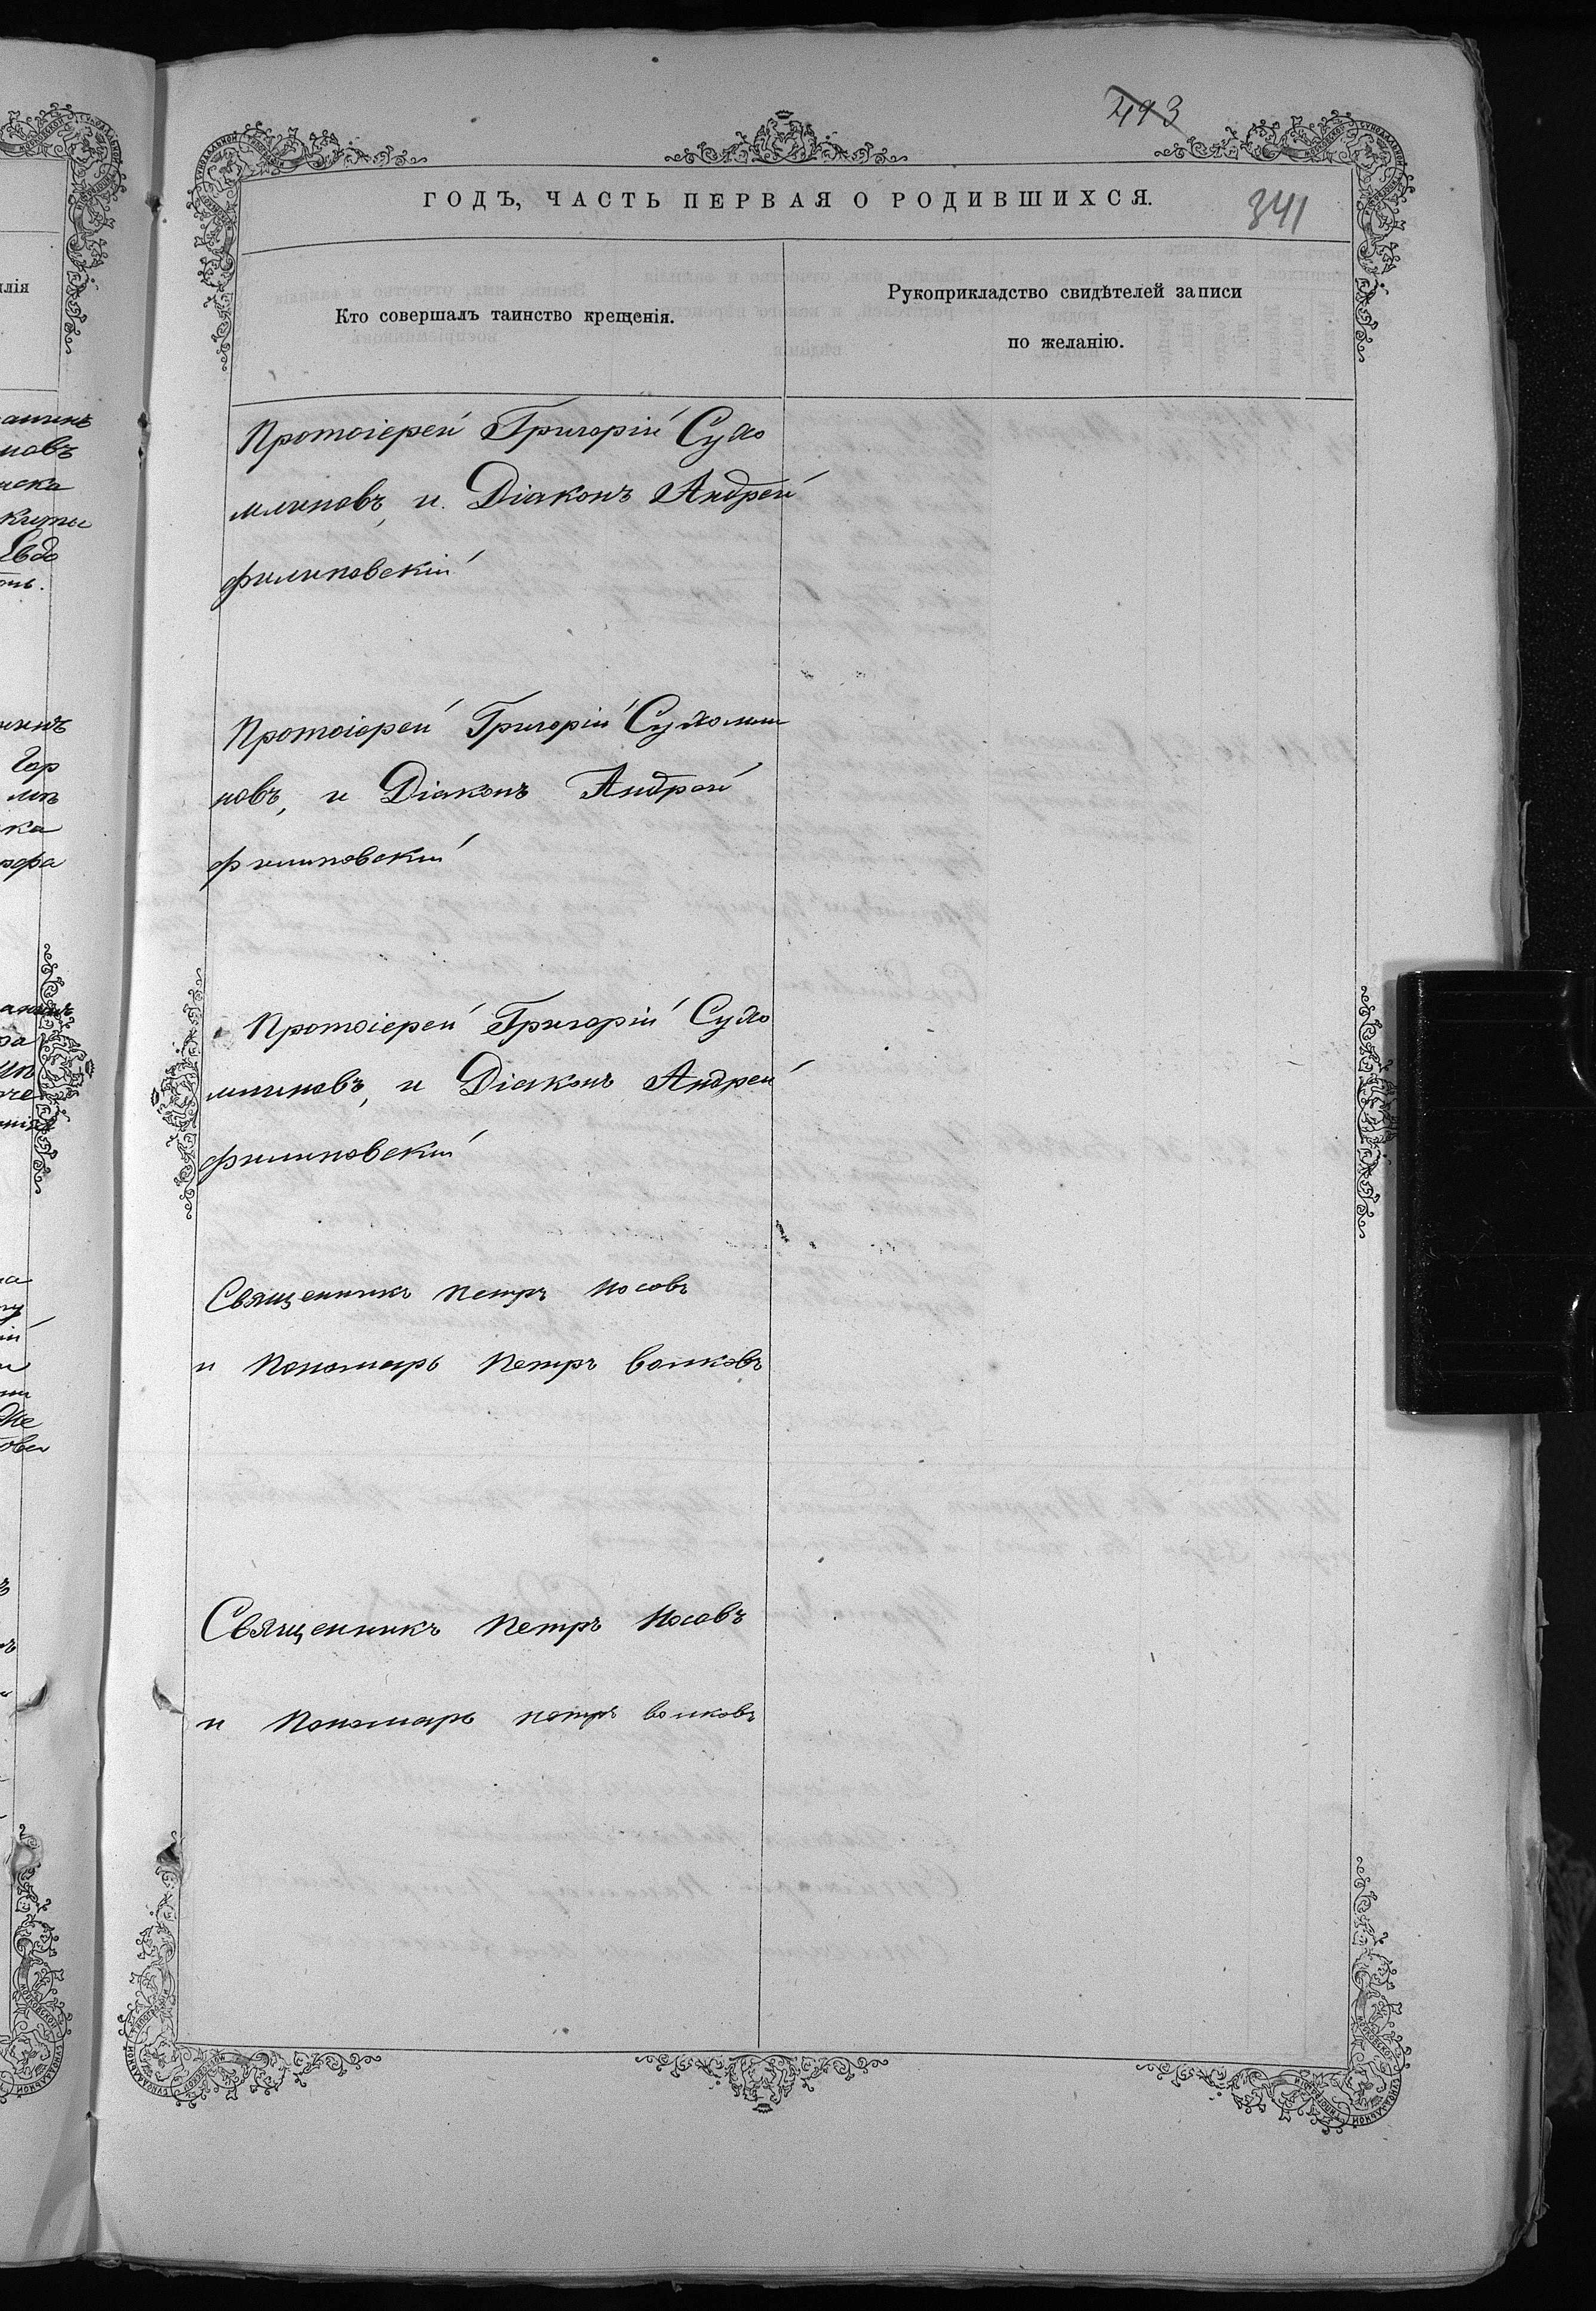 493
ГОДЪ, ЧАСТЬ ПЕРВАЯ О РОДИВШИХСЯ.
341
лія
Кто совершалъ таинство крещенія.
Рукоприкладство свидѣтелей записи
по желанію.
Протоіерей Григорій Сухо
млиновъ, и Діаконъ Андрей
филиповскій
Протоіерей Григорій Сухомли
новъ, и Діаконъ Андрей
филиповскій
Протоіерей Григорій Сухо
млиновъ, и Діаконъ Андрей
филиповскій
Священникъ Петръ Носовъ
и Пономарь Петръ Волковъ
Священникъ Петръ Носовъ
и Пономарь Петръ Волковъ